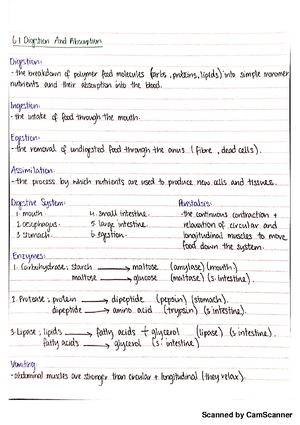 6.1 Digestion And Absorption
Digestion:
- the breakdown of polymer food molecules (carbs, proteins, lipids) into simple monomer
nutrients and their absorption into the blood.
Ingestion:
- the intake of food through the mouth.
Egestion:
- the removal of undigested food through the anus (fibre, dead cells).
Assimilation:
- the process by which nutrients are used to produce new cells and tissues.
Digestive System:
1. mouth
2. oesophagus
3. stomach
4. small intestine
5. large intestine
6. egestion
Peristalsis:
- the continuous contraction +
relaxation of circular and
longitudinal muscles to move
food down the system.
Enzymes:
1. Carbohydrase; starch → maltose (amylase) (mouth)
maltose → glucose (maltase) (s. intestine).
2. Protease; protein → dipeptide (pepsin) (stomach).
dipeptide → amino acid (trypsin) (s. intestine).
3. Lipase; lipids → fatty acids + glycerol (lipase) (s. intestine).
fatty acids → glycerol (s. intestine)
Vomiting:
- abdominal muscles are stronger than circular + longitudinal (they relax).
Scanned by CamScanner